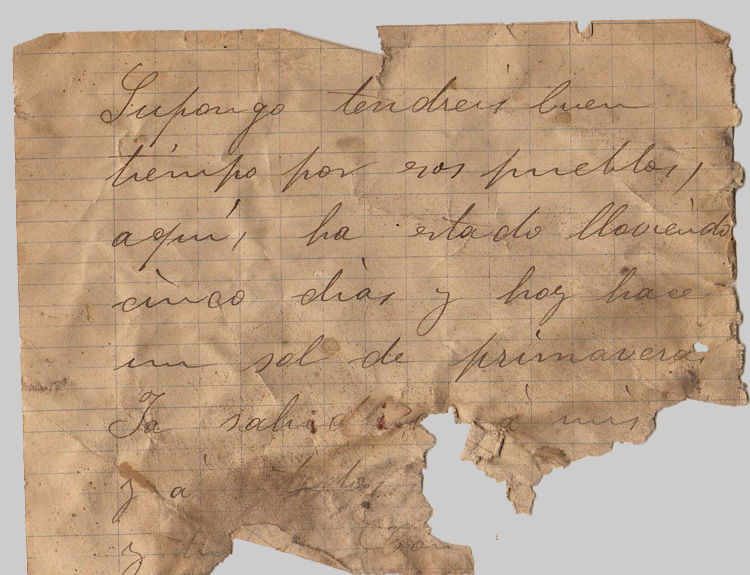 Supongo tendreis buen
tiempo por esos pueblos,
aquí, ha estado lloviendo
cinco días y hoy hace
un sol de primavera
Ya à mis
y a todos
y